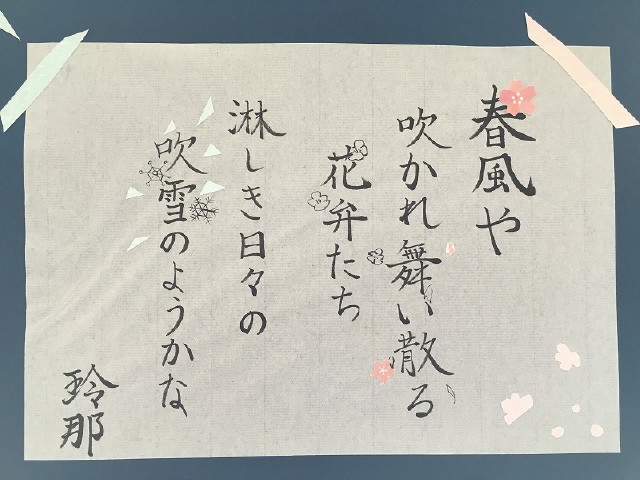 春風や
吹かれ舞い散る
花弁たち
淋しき日々の
吹雪のようかな
玲那